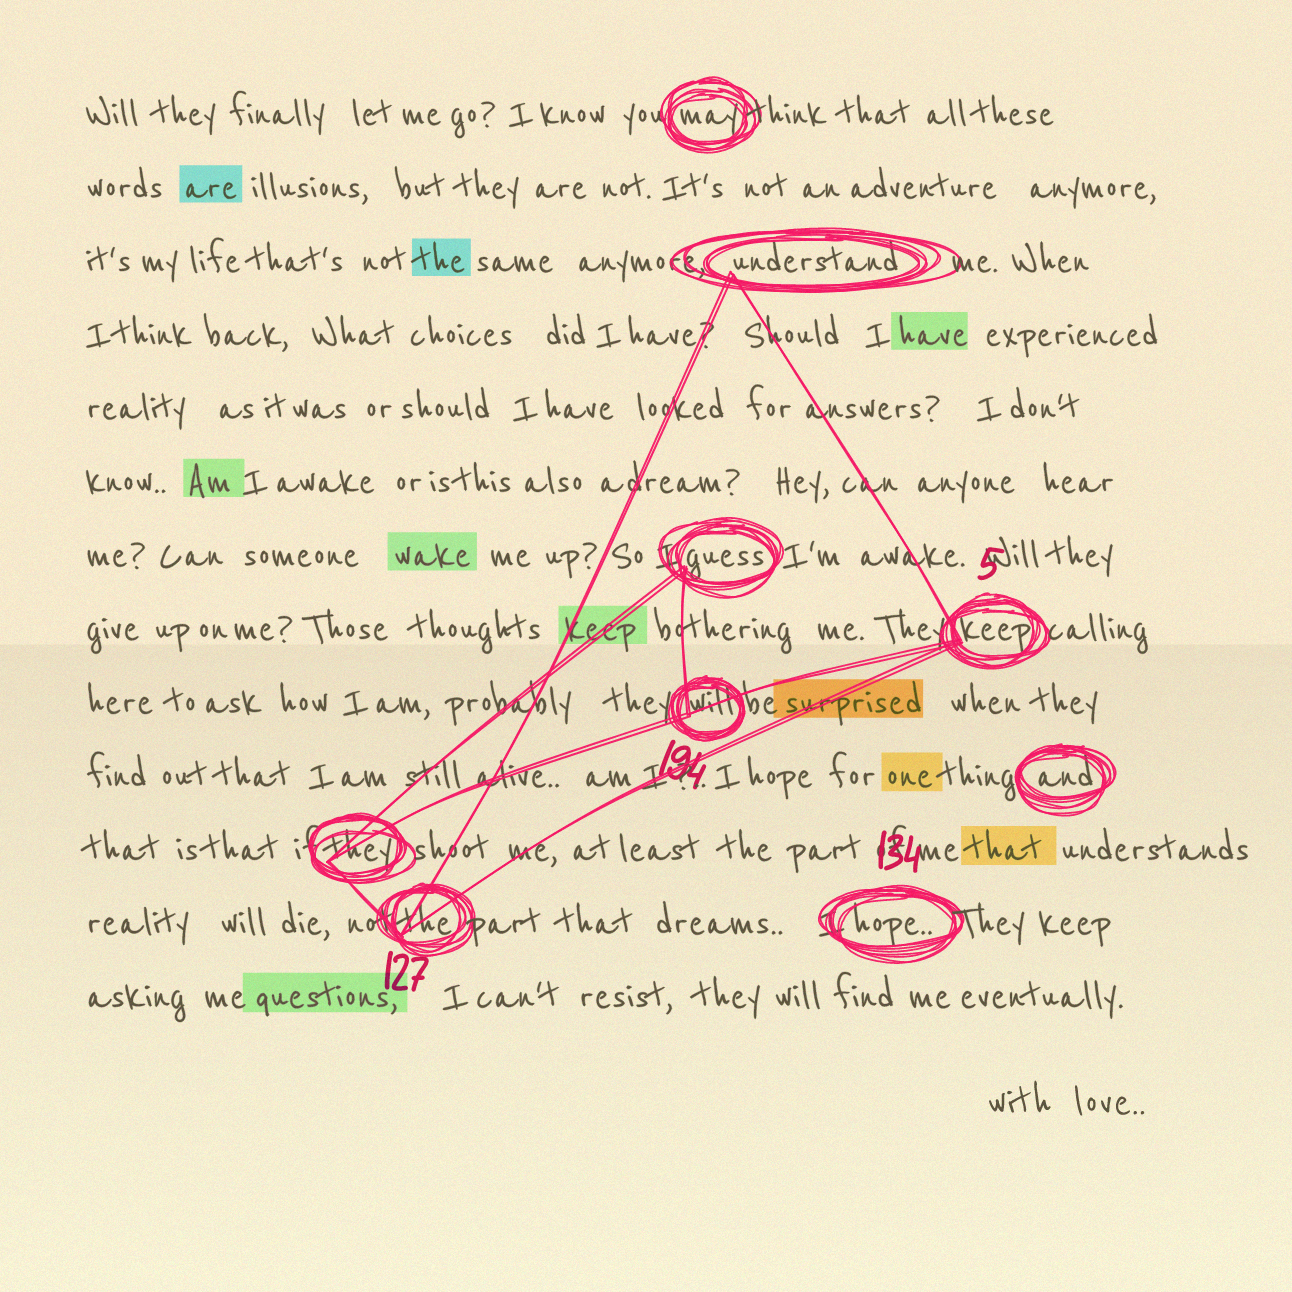 Will they finally let me go? I know you may think that all these
words are illusions, but they are not. It's not an adventure anymore,
it's my life that's not the same anymore, understand me. When
I think back, What choices did I have? Should I have experienced
reality as it was or should I have looked for answers? I don't
know.. Am I awake or is this also a dream? Hey, can anyone hear
me? Can someone wake me up? So I guess I'm awake. Will they
5
give up on me? Those thoughts keep bothering me. They keep calling
here to ask how I am, probably they will be surprised when they
194
find out that I am still alive.. am I ?.. I hope for one thing and
that is that if they shoot me, at least the part of me that understands
134
reality will die, not the part that dreams.. I hope.. They keep
127
asking me questions, I can't resist, they will find me eventually.
with love..